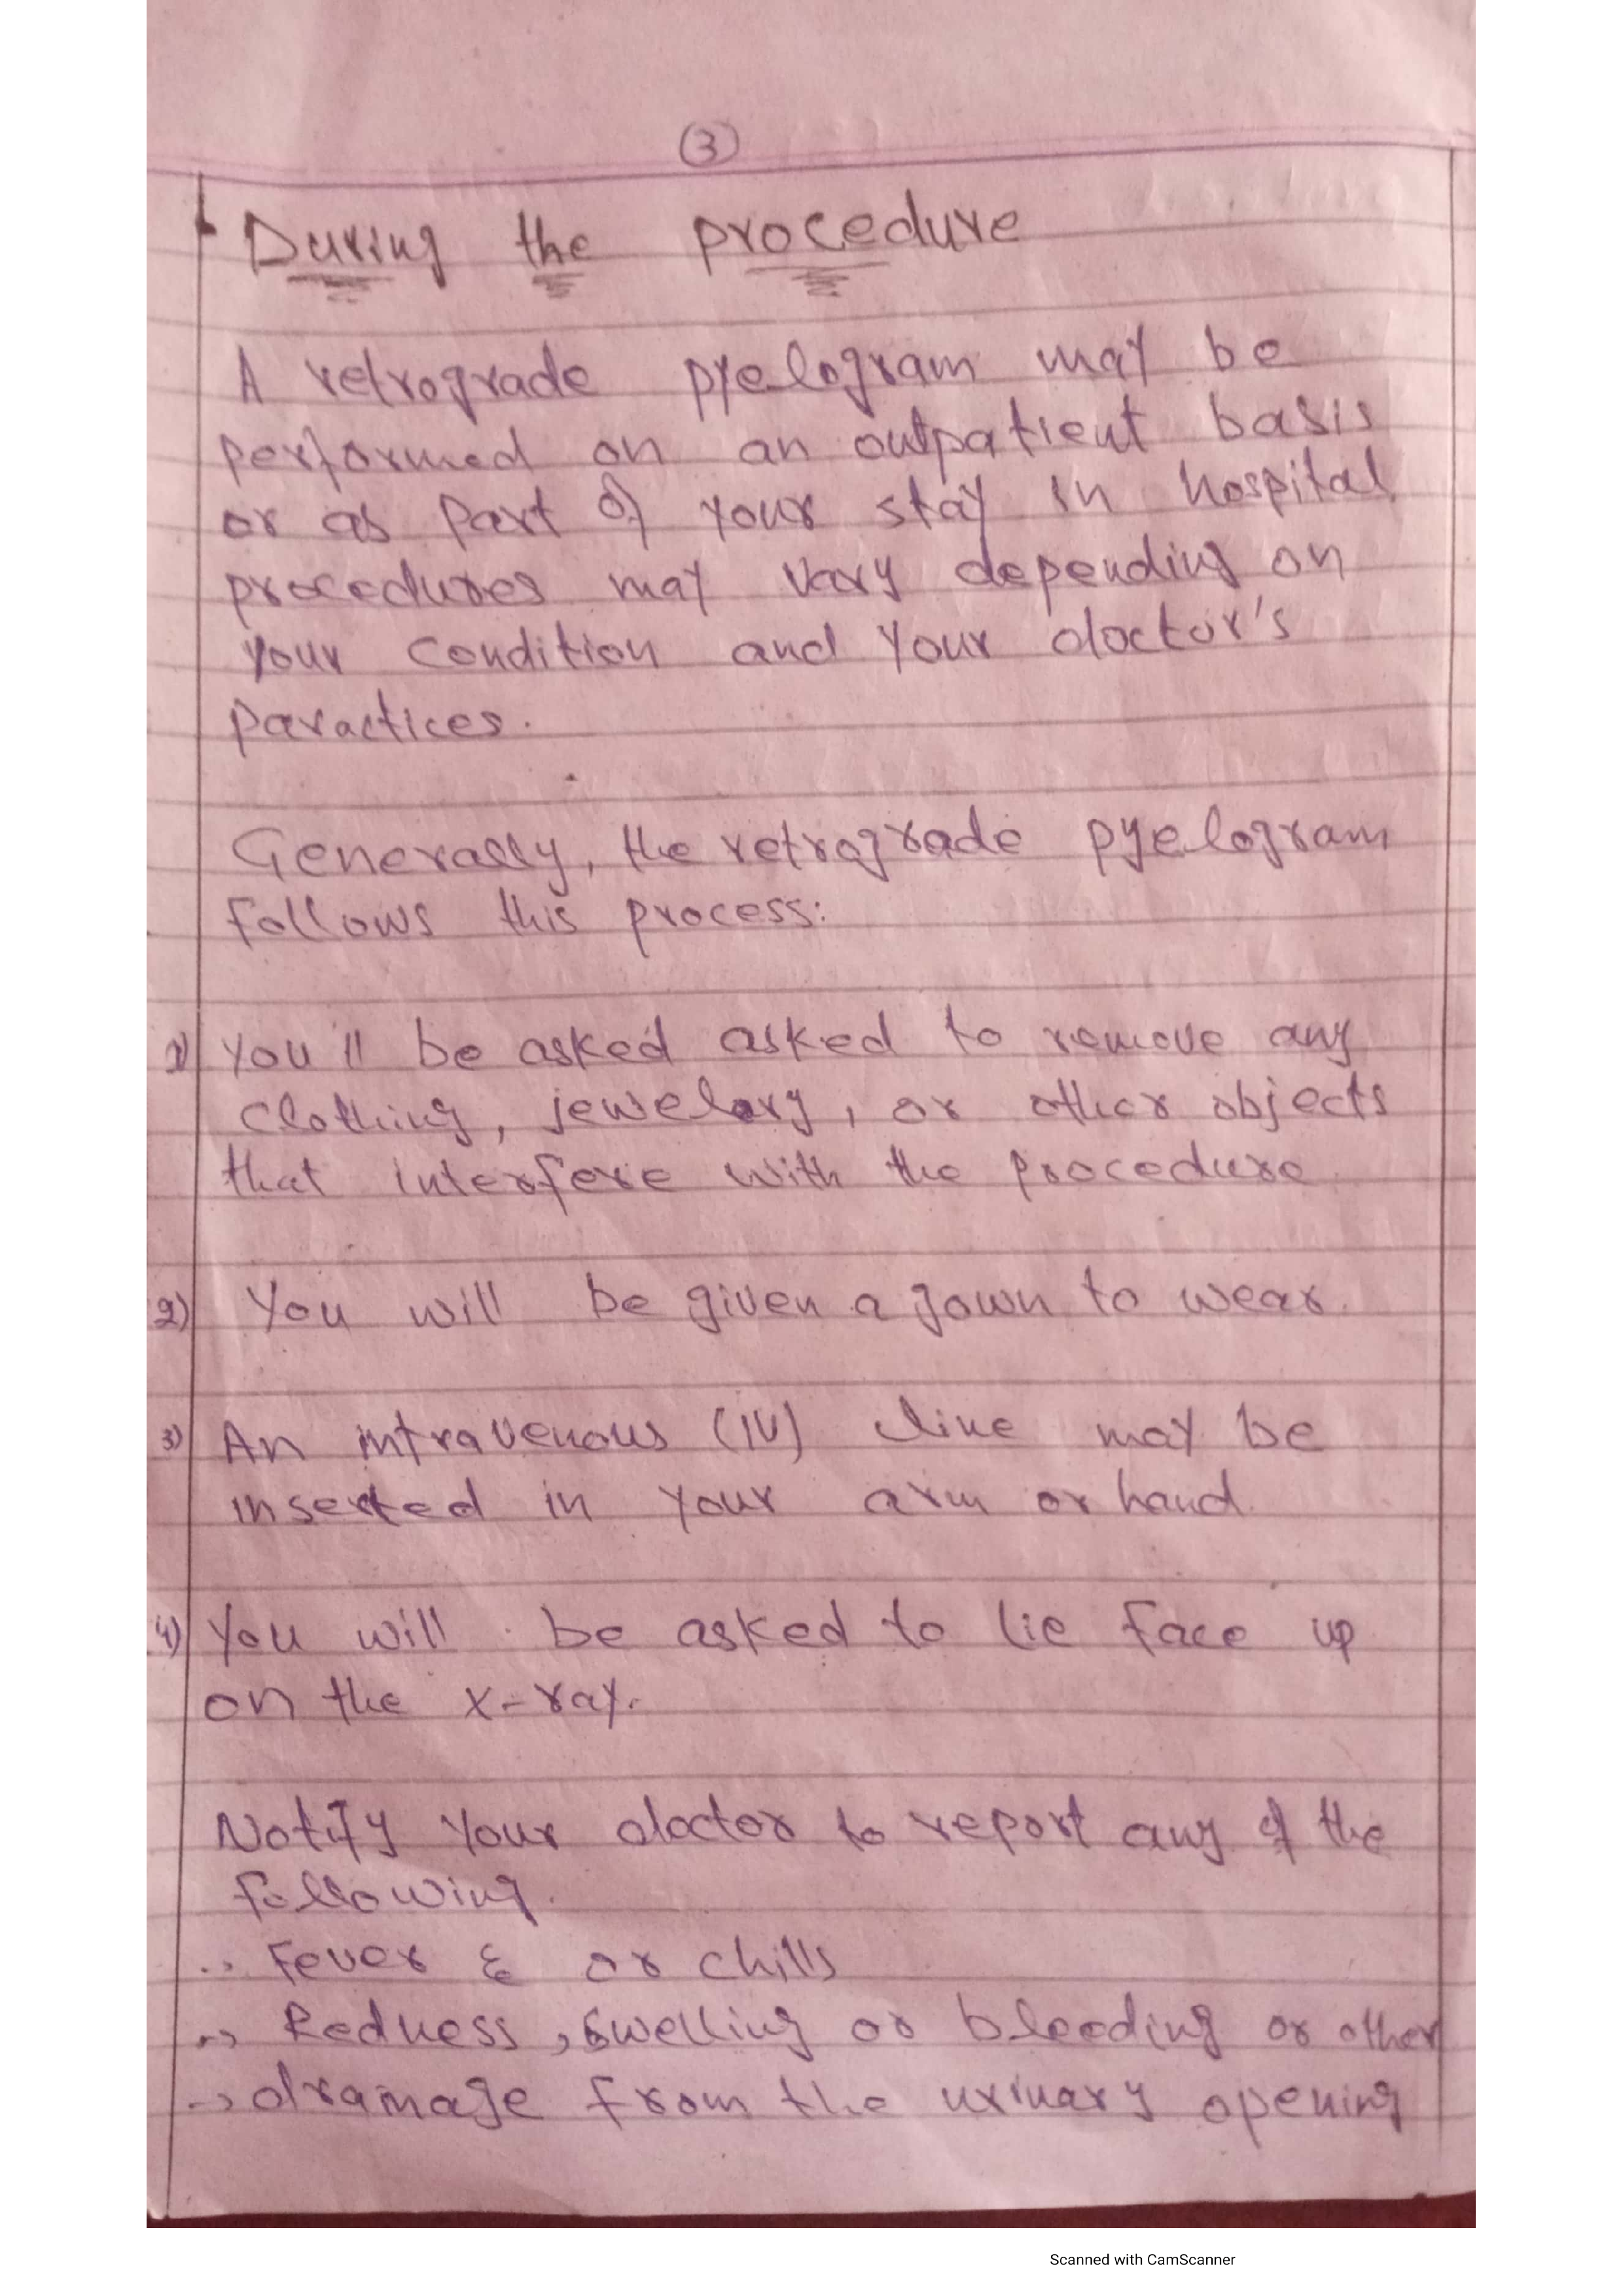 3
During the procedure
A retrograde pyelogram may be
performed on an outpatient basis
or as part of your stay in hospital
procedures may vary depending on
your condition and your doctor's
paractices.
Generally, the retrograde pyelogram
follows this process:
1) You'll be asked asked to remove any
clothing, jewelary, or other objects
that interfere with the procedure.
2) You will be given a gown to wear.
3) An intravenous (IV) line may be
inserted in your arm or hand.
4) You will be asked to lie face up
on the x-ray.
Notify your doctor to report any of the
following.
Fever & or chills
→ Redness, swelling or bleeding or other
→ dramage from the urinary opening
Scanned with CamScanner